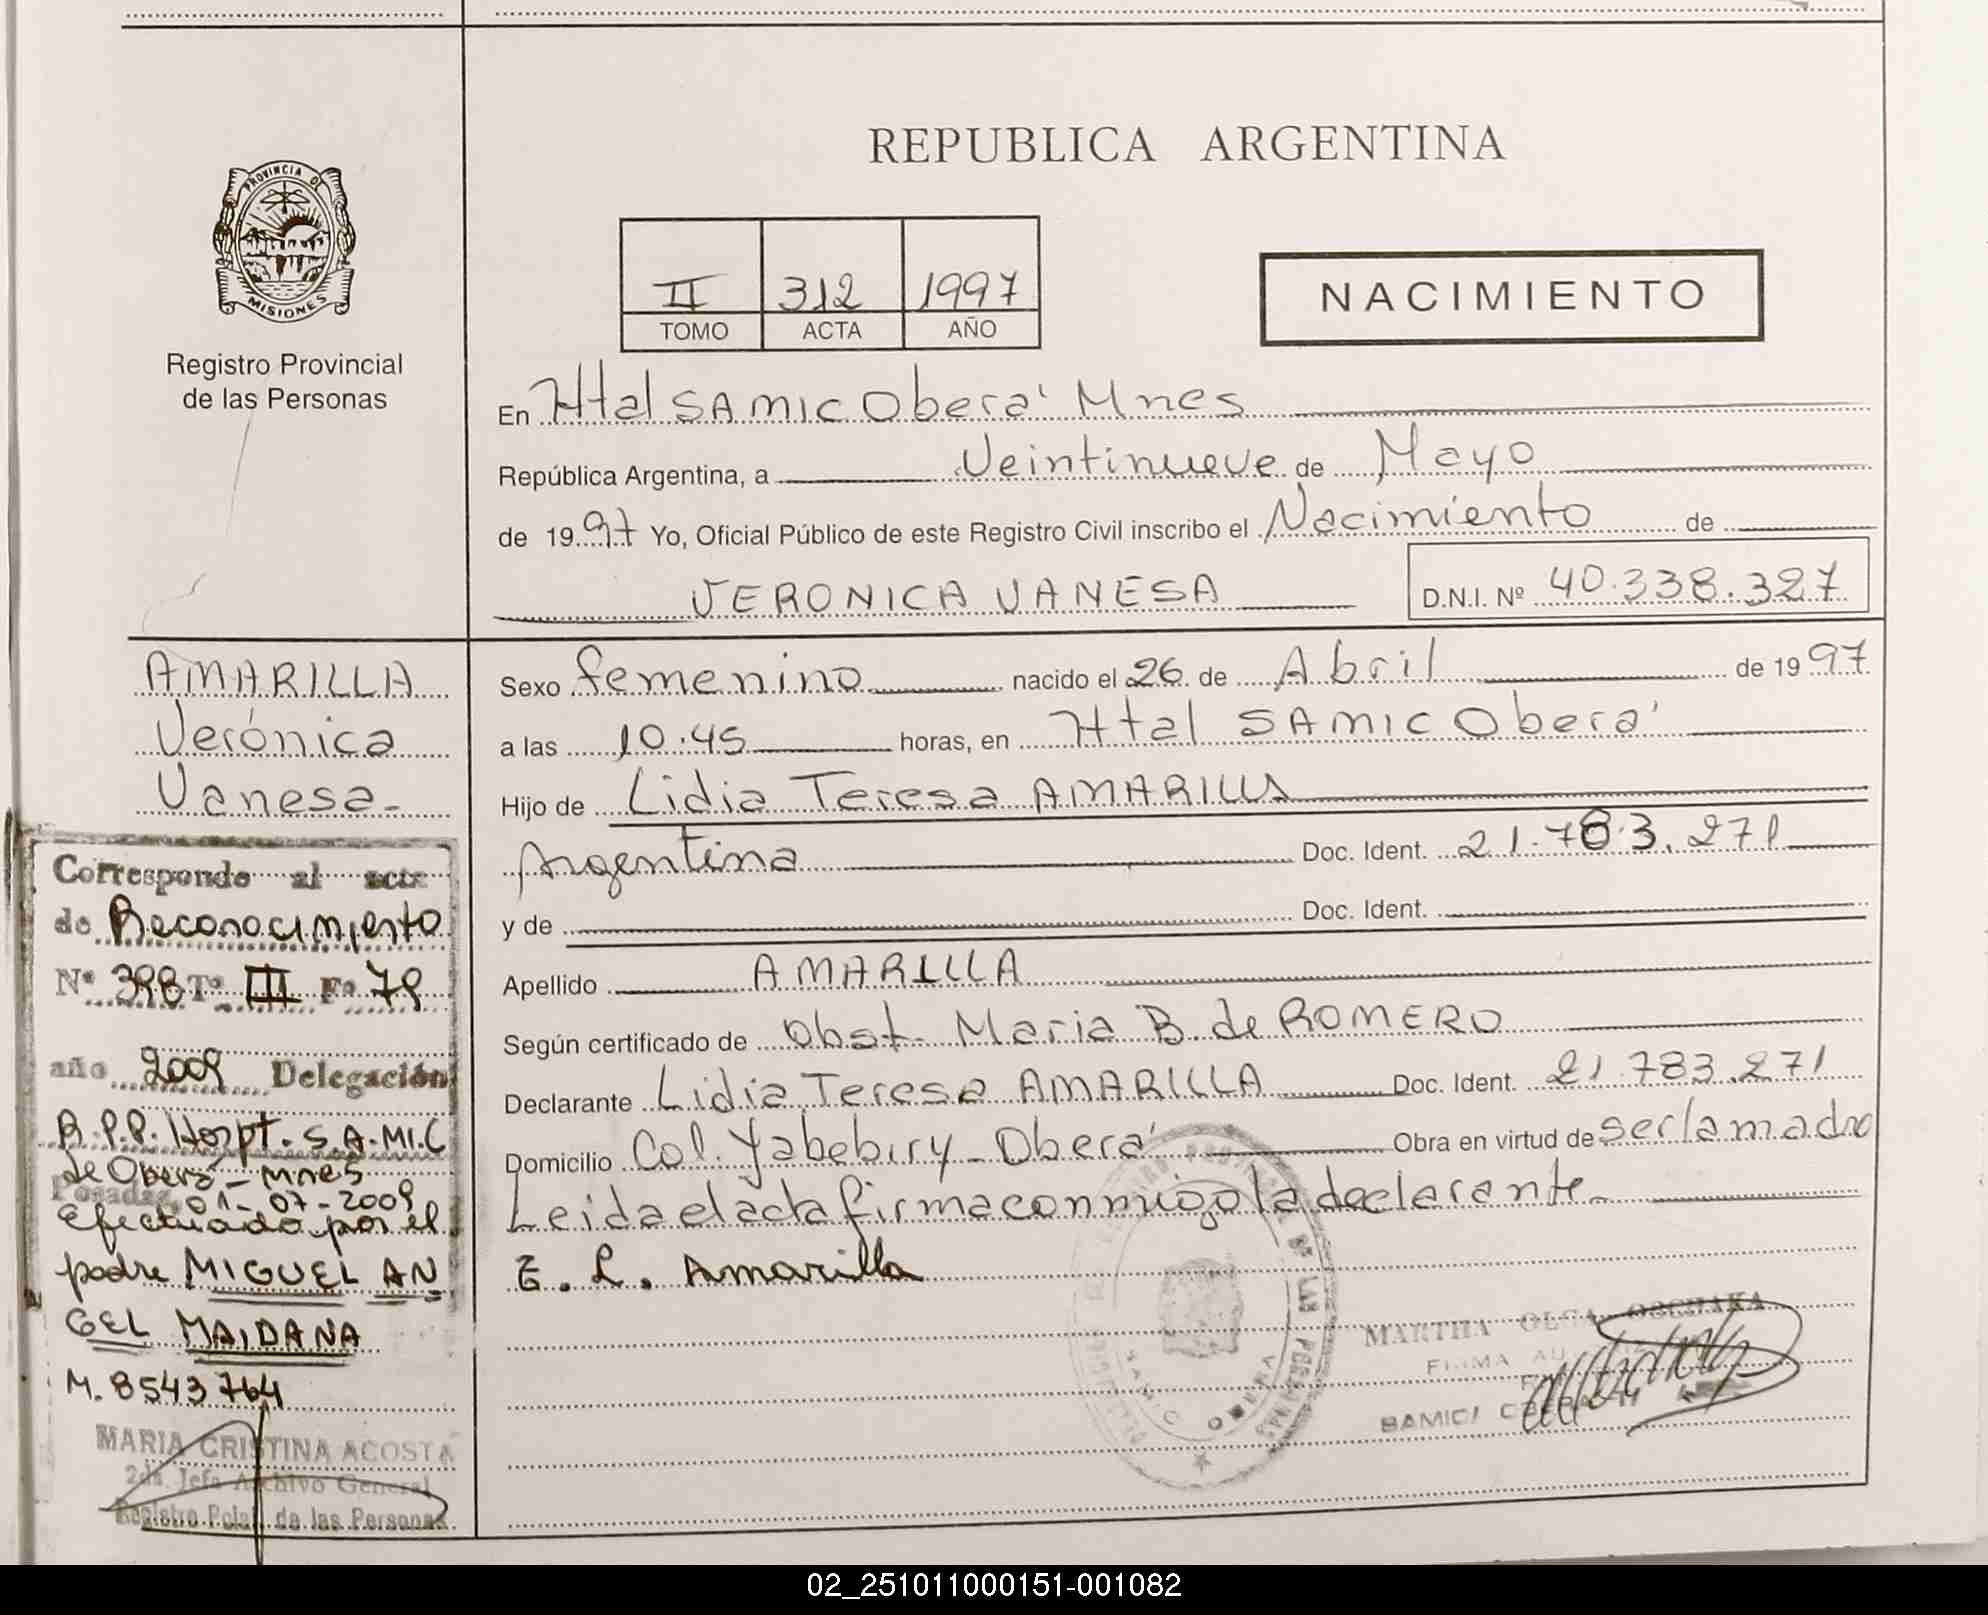 REPUBLICA ARGENTINA
PROVINCIA DE
MISIONES
Registro Provincial
de las Personas
II 312 1997
TOMO ACTA AÑO
NACIMIENTO
En Htal SAMIC Oberá Mnes
República Argentina, a Veintinueve de Mayo
de 1997 Yo, Oficial Público de este Registro Civil inscribo el Nacimiento de
VERONICA VANESA D.N.I. Nº 40.338.327
AMARILLA
Verónica
Vanesa-
Sexo femenino nacido el 26 de Abril de 1997
a las 10.45 horas, en Htal SAMIC Oberá
Hijo de Lidia Teresa AMARILLA
Argentina Doc. Ident. 21.783.271
y de Doc. Ident.
Apellido AMARILLA
Según certificado de Obst. Maria B. de ROMERO
Declarante Lidia Teresa AMARILLA Doc. Ident. 21.783.271
Domicilio Col. Yabebiry - Oberá Obra en virtud de ser la madre
Leida el acta firma conmigo la declarante
E. L. Amarilla
Corresponde al acta
de Reconocimiento
Nº 398 Tº III Fº 79
año 2009 Delegación
R.P.P. Hospt. S.A.MI.C
de Oberá - Mnes
Posadas, 01-07-2009
Efectuado por el
padre MIGUEL AN
GEL MAIDANA
M. 8543764
MARIA CRISTINA ACOSTA
2da. Jefa Archivo General
Registro Pcial. de las Personas
MARTHA OLGA
FIRMA
SAMIC OBERA
02_251011000151-001082